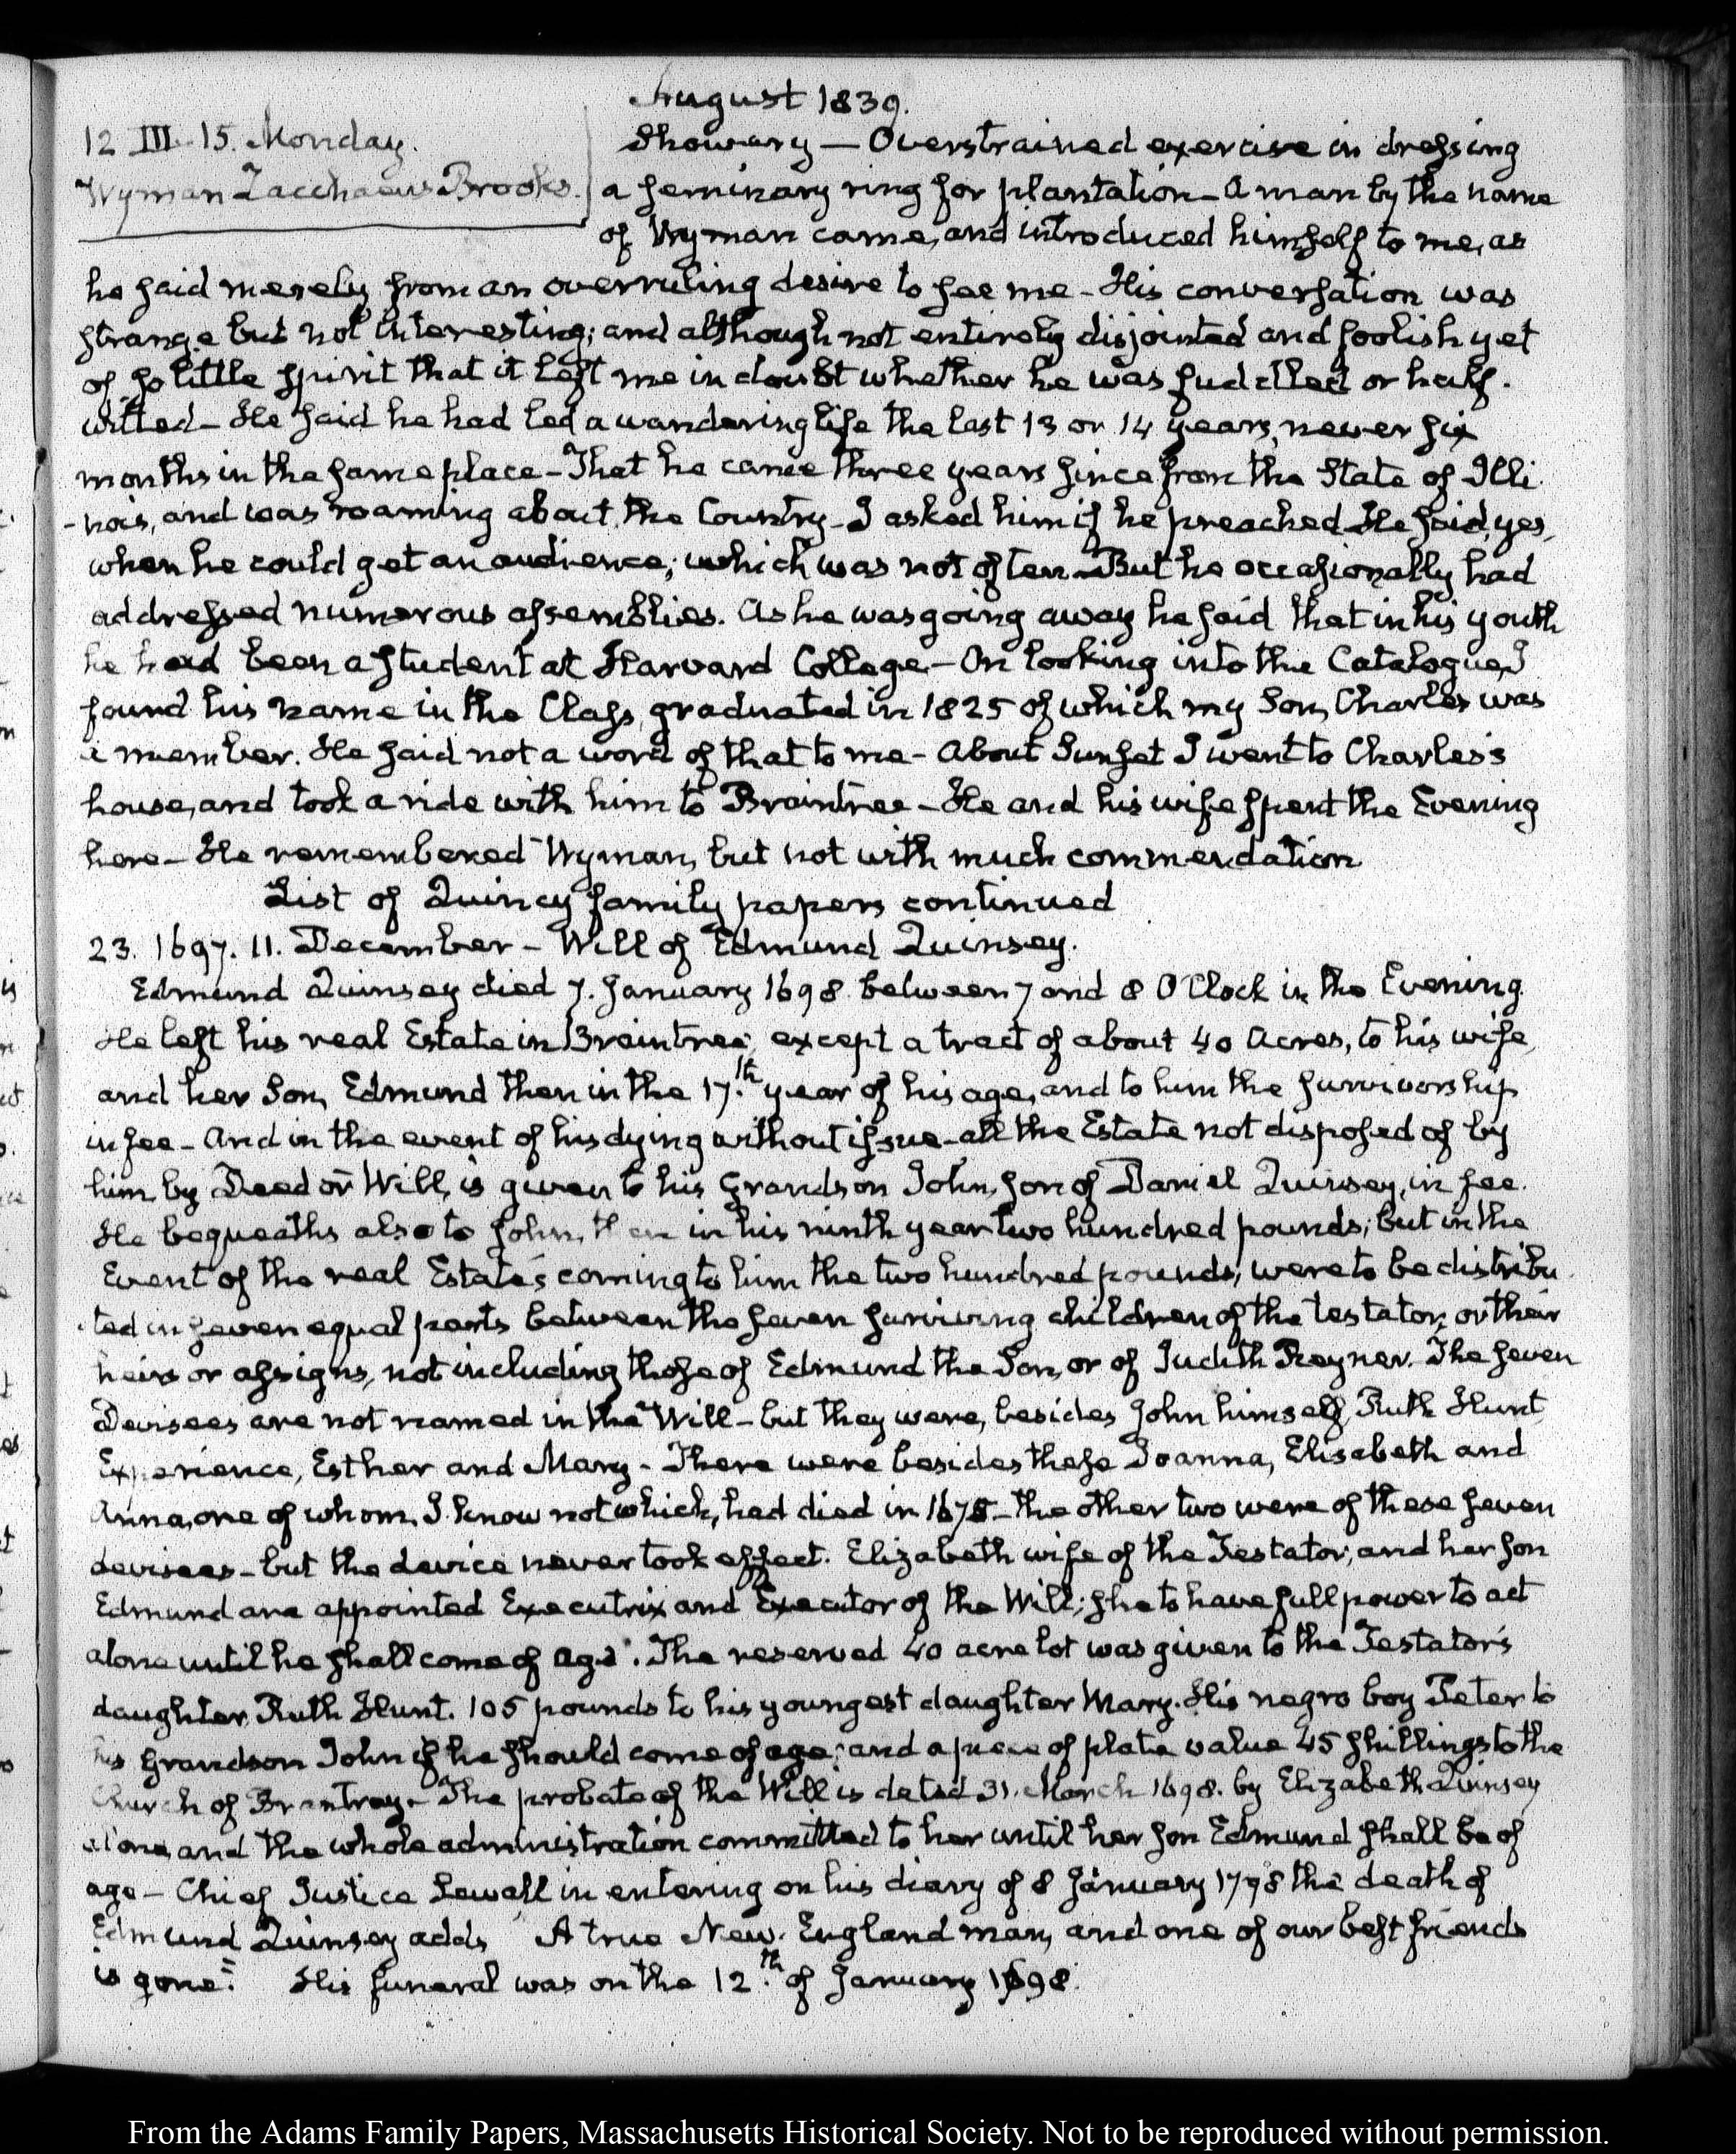 August 1839.
12 III. 15. Monday.
Wyman Zacchaeus Brooks.
Showery — Overstrained exercise in dressing
a seminary ring for plantation — A man by the name
of Wyman came, and introduced himself to me, as
he said merely from an overruling desire to see me — His conversation was
strange but not interesting; and although not entirely disjointed and foolish yet
of so little spirit that it left me in doubt whether he was fuddled or half-
witted — He said he had led a wandering life the last 13 or 14 years, never six
months in the same place — That he came three years since from the State of Illi-
-nois, and was roaming about the Country — I asked him if he preached. He said, yes,
when he could get an audience; which was not often — But he occasionally had
addressed numerous assemblies. As he was going away he said that in his youth
he had been a Student at Harvard College — On looking into the Catalogue, I
found his name in the Class, graduated in 1825 of which my Son, Charles was
a member. He said not a word of that to me — About Sunset I went to Charles's
house, and took a ride with him to Braintree — He and his wife spent the Evening
here — He remembered Wyman, but not with much commendation
List of Quincy family papers continued
23. 1697. 11. December — Will of Edmund Quinsey.
Edmund Quinsey died 7. January 1698. between 7 and 8 O'Clock in the Evening.
He left his real Estate in Braintree, except a tract of about 40 Acres, to his wife,
and her Son, Edmund then in the 17.th year of his age, and to him the survivorship
in fee — And in the event of his dying without issue — all the Estate not disposed of by
him, by Deed or Will, is given to his Grandson John, son of Daniel Quinsey, in fee.
He bequeaths also to John, then in his ninth year two hundred pounds; but in the
Event of the real Estate's coming to him the two hundred pounds, were to be distribu
-ted in seven equal parts between the seven surviving children of the testator, or their
heirs or assigns, not including those of Edmund the Son, or of Judith Reyner. The seven
Devisees are not named in the Will — but they were, besides John himself, Ruth Hunt,
Experience, Esther and Mary — There were besides these Joanna, Elisabeth and
Anna, one of whom, I know not which, had died in 1675 — the other two were of these seven
devisees — but the device never took effect. Elizabeth wife of the Testator, and her son
Edmund are appointed Executrix and Executor of the Will; she to have full power to act
alone until he shall come of age. The reserved 40 acre lot was given to the Testator's
daughter Ruth Hunt. 105 pounds to his youngest daughter Mary. His negro boy Peter to
his Grandson John if he should come of age; and a piece of plate value 45 shillings to the
Church of Braintrey — The probate of the Will is dated 31. March 1698. by Elizabeth Quinsey
alone, and the whole administration committed to her until her son Edmund shall be of
age — Chief Justice Sewall in entering on his diary of 8 January 1798 the death of
Edmund Quinsey adds "A true New-England man, and one of our best friends
is gone." His funeral was on the 12.th of January 1698.
From the Adams Family Papers, Massachusetts Historical Society. Not to be reproduced without permission.